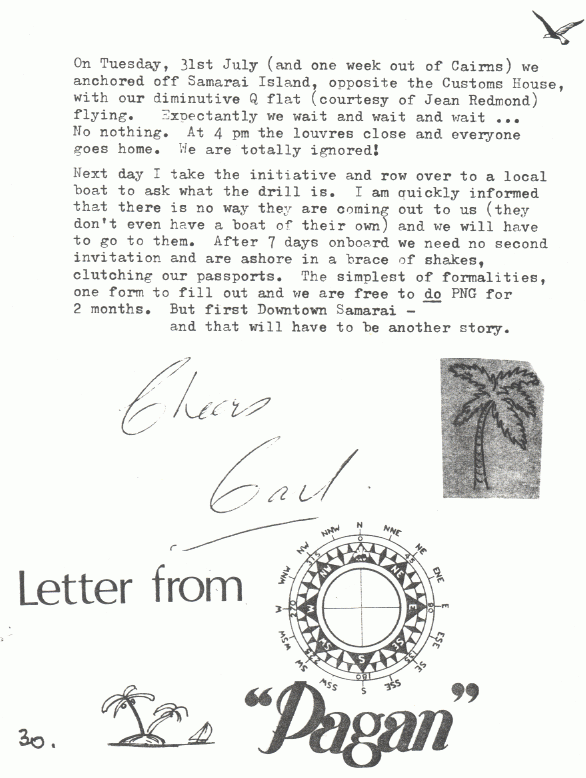 On Tuesday, 31st July (and one week out of Cairns) we
anchored off Samarai Island, opposite the Customs House,
with our diminutive Q flat (courtesy of Jean Redmond)
flying. Expectantly we wait and wait and wait ...
No nothing. At 4 pm the louvres close and everyone
goes home. We are totally ignored!
Next day I take the initiative and row over to a local
boat to ask what the drill is. I am quickly informed
that there is no way they are coming out to us (they
don't even have a boat of their own) and we will have
to go to them. After 7 days onboard we need no second
invitation and are ashore in a brace of shakes,
clutching our passports. The simplest of formalities,
one form to fill out and we are free to do PNG for
2 months. But first Downtown Samarai -
and that will have to be another story.
Cheers
Letter from
N
NNE
NE
ENE
E
ESE
SE
SSE
S
SSW
SW
WSW
W
WNW
NW
NNW
0
45
90
135
180
225
270
315
NE
E
SE
S
SW
W
NW
"Pagan"
30.